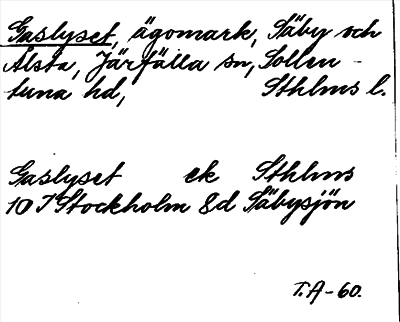 Gaslyset, ägomark, Säby och
Ålsta, Järfälla sn, Sollen-
tuna hd, Sthlms l.
Gaslyset ek Sthlms
10 I Stockholm 8d Säbysjön
T.A-60.